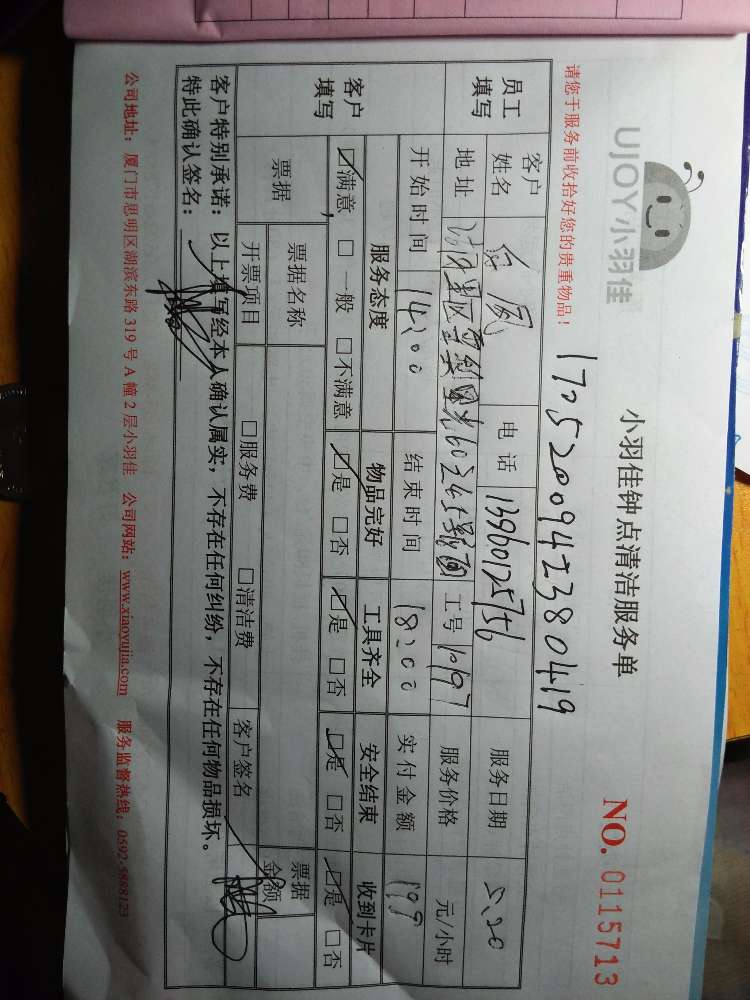 UJOY小羽佳
小羽佳钟点清洁服务单
NO. 0115713
请您于服务前收拾好您的贵重物品！
1705200942380419
员工填写
客户姓名
电话 13960125756
服务日期 5.20
地址
工号 1097
服务价格 元/小时
开始时间 14:00 结束时间 18:00 实付金额 199
客户填写
服务态度 物品完好 工具齐全 安全结束 收到卡片
☑满意 □一般 □不满意 ☑是 □否 ☑是 □否 ☑是 □否 ☑是 □否
票据
票据名称
票据金额
开票项目 □服务费 □清洁费 客户签名
客户特别承诺：以上填写经本人确认属实，不存在任何纠纷，不存在任何物品损坏。
特此确认签名：
公司地址：厦门市思明区湖滨东路319号A幢2层小羽佳 公司网站：www.xiaoyujia.com 服务监督热线：0592-5888123